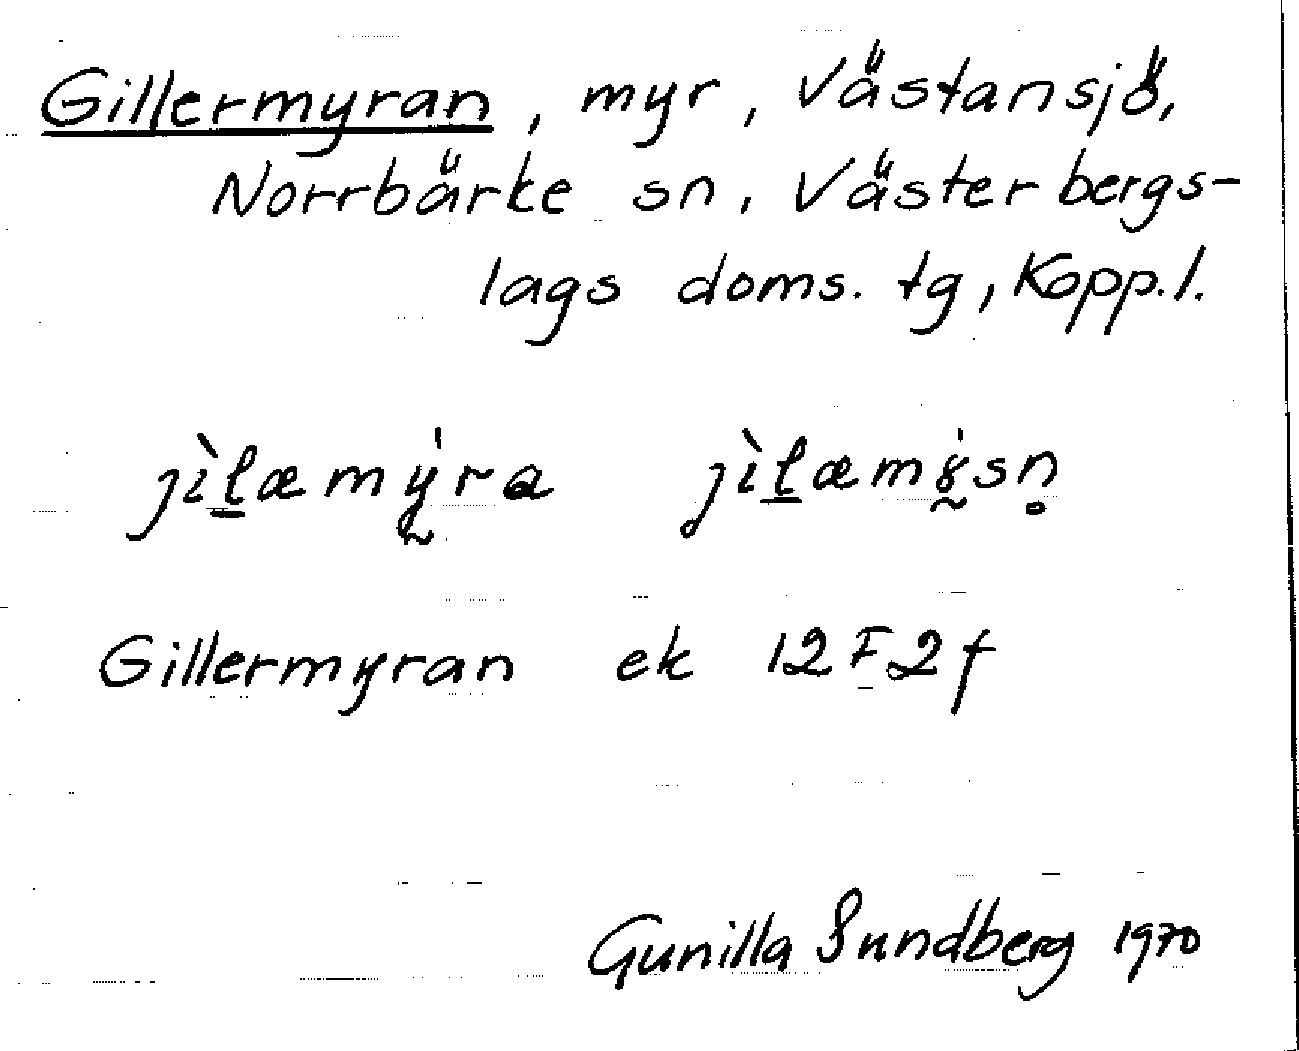 Gillermyran, myr, Västansjö,
Norrbärke sn, Västerbergs-
lags doms. tg, Kopp. l.
jìḻæmy̰̍ra jìḻæmy̰̍sn̥
Gillermyran ek 12F2f
Gunilla Sundberg 1970